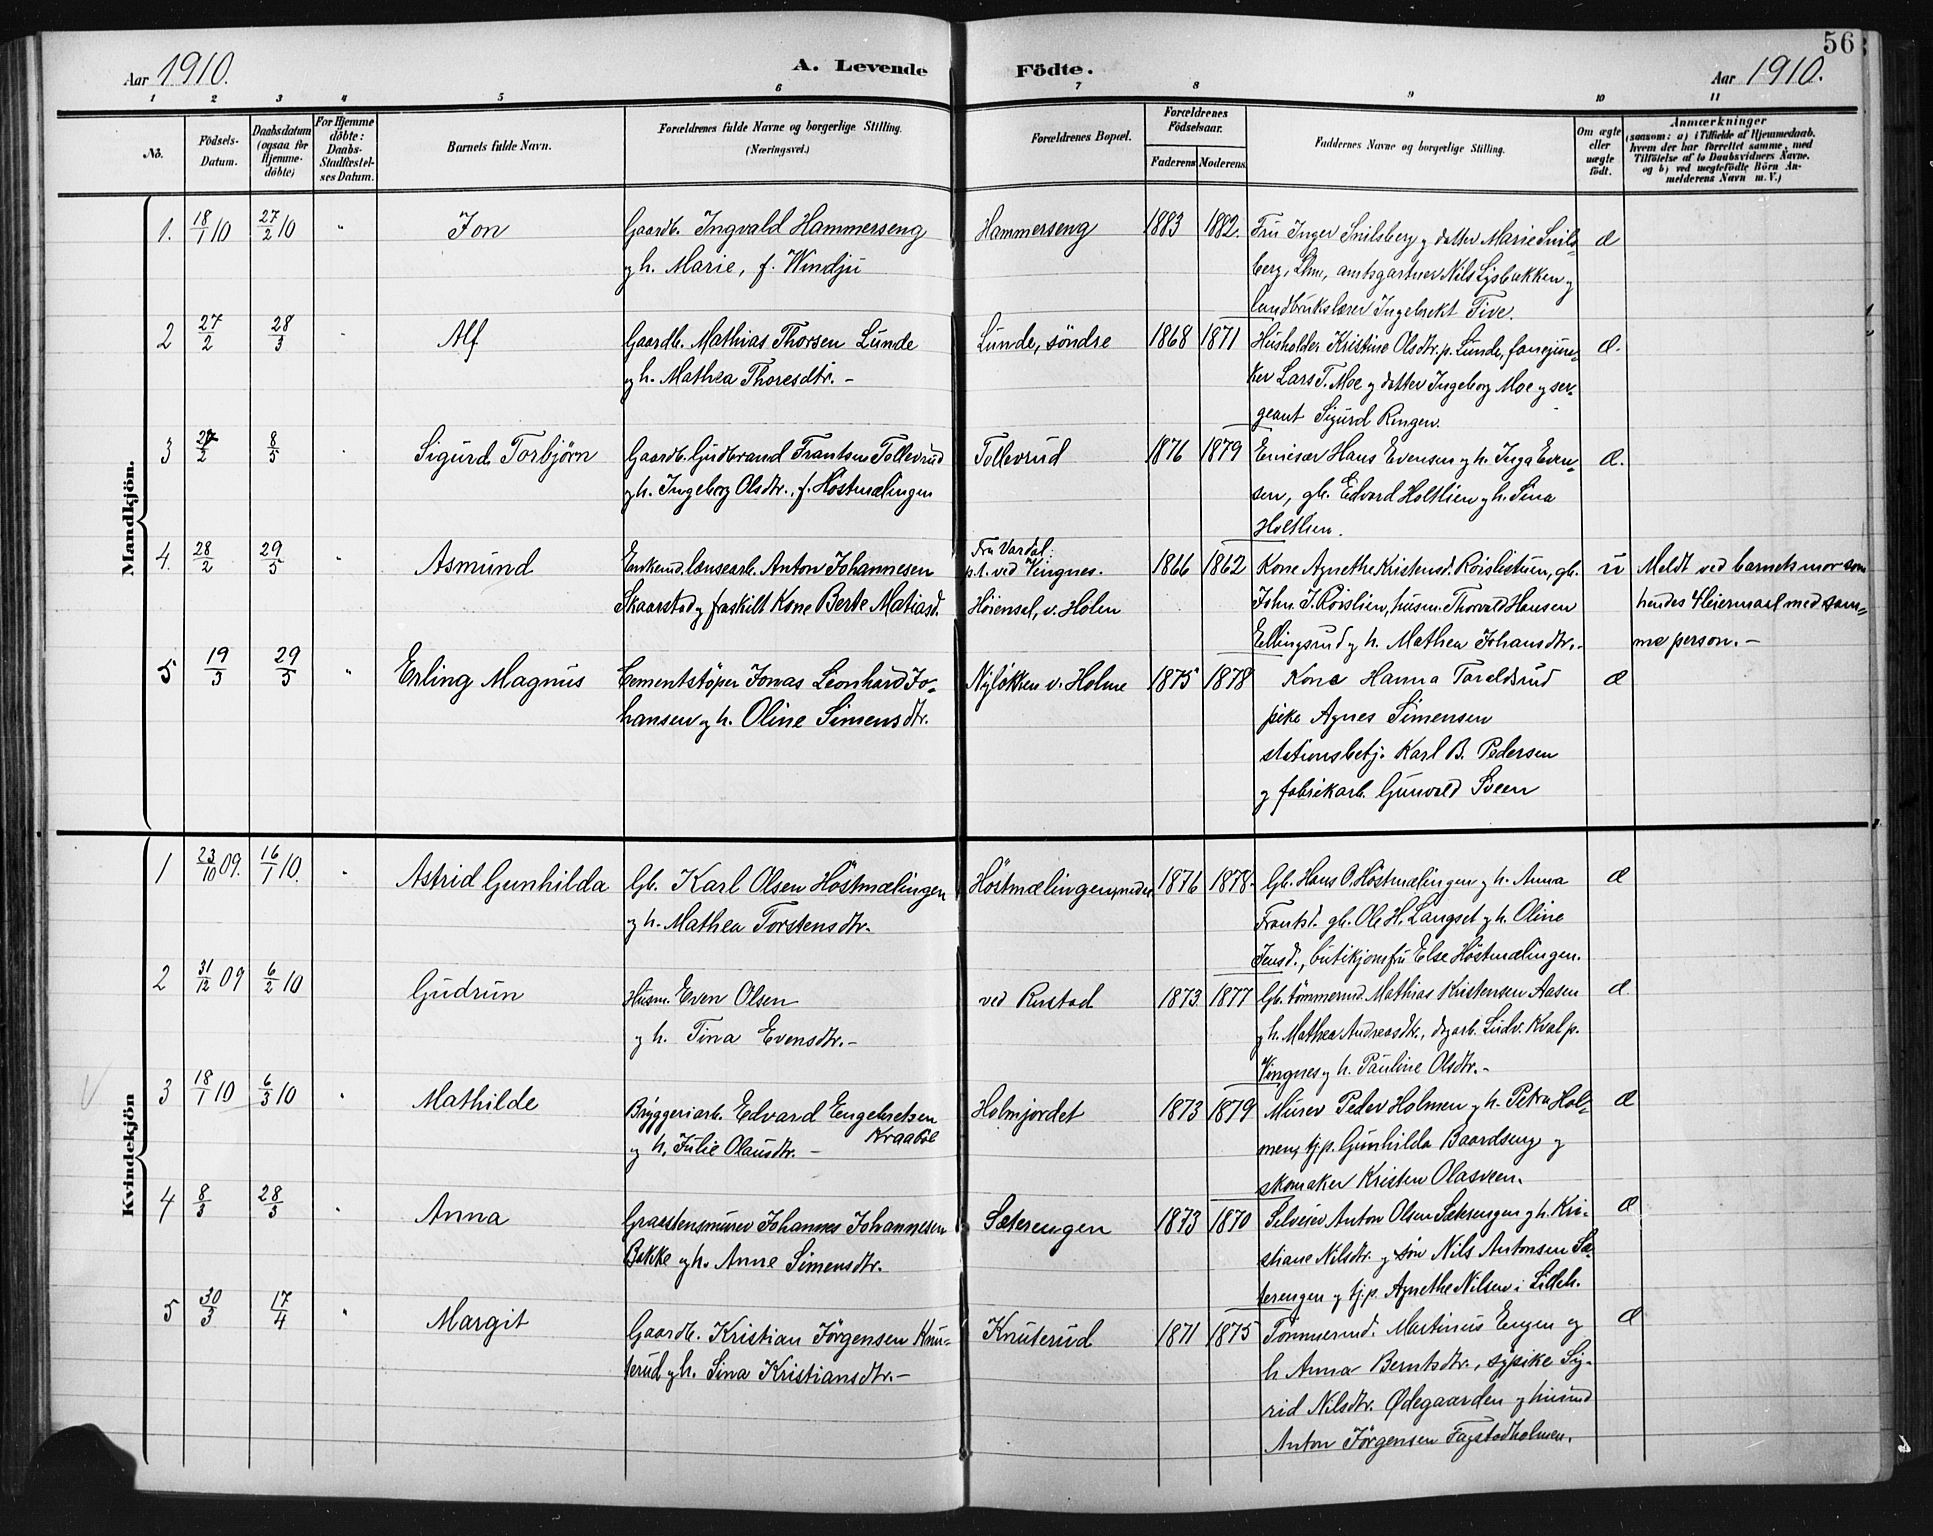 56
Aar 1910.
A. Levende Födte.
Aar 1910.
1 2 3 4 5 6 7 8 9 10 11
No.
Födsels-Datum.
Daabsdatum (ogsaa for Hjemme-döbte)
For Hjemme döbte: Daabs-Stadfæstel-ses Datum.
Barnets fulde Navn.
Forældrenes fulde Navne og borgerlige Stilling. (Næringsvei.)
Forældrenes Bopæl.
Forældrenes Födselsaar.
Faderens Moderens.
Faddernes Navne og borgerlige Stilling.
Om ægte eller uægte födt.
Anmærkninger
(saasom: a) i Tilfælde af Hjemmedaab, hvem der har forrettet samme, med Tilföielse af to Daabsvidners Navne. og b) ved uægtefödte Börn An-melderens Navn m. V.)
Mandkjön.
1. 18/1 10 27/2 10 " Jon
Gaardb. Ingvald Hammerseng
og h. Marie, f. Windju
Hammerseng 1883 1882.
Fru Inger Snilsberg og datter Marie Snils-
berg, Lhm, amtsgartner Nils Lysbakken og
landbrukslærer Ingebrekt Five.
æ
2 27/2 28/3 Alf
Gaardb. Mathias Thorsen Lunde
og h. Mathea Thoresdtr. -
Lunde, söndre 1868 1871
Husholder Kristine Olsdtr. p. Lunde, fanejun-
ker Lars T. Moe og datter Ingeborg Moe og ser-
geant Sigurd Ringen.
æ.
3 27/2 8/5 Sigurd Torbjørn
Gaardb. Gudbrand Frantsen Tollevrud
og h. Ingeborg Olsdtr. f. Höstmælingen
Tollevrud 1876 1879
Emisær Hans Evensen og h. Inga Even-
sen, gb. Edvard Holtlien og h. Sina
Holtlien.
æ.
4. 28/2 29/5 " Asmund
Enkemd. lænsearb. Anton Johannesen
Skaarstad og fraskilt Kone Berte Matiasd.
Fra Vardal:
p.t. ved Vingnes.
Höiensal, v. Holm
1866 1862
Kone Agnethe Kristensd. Roislistuen, gb.
John. J. Roislien, husm. Thorvald Hansen
Ellingsrud og h. Mathea Johansdtr. -
u
Meldt ved barnets mor som
hendes 4 leiermaal med sam-
me person. -
5 19/3 29/5 " Erling Magnus
Cementstöper Jonas Leonhard Jo-
hansen og h. Oline Simensdtr.
Nyløkken v. Holme 1875 1878
Kone Hanna Taraldsrud
pike Agnes Simensen
stationsbetj. Karl B. Pedersen
og fabrikarb. Gunvald Sveen
æ
Kvindekjön
1 23/10 09. 16/1 10. " Astrid Gunhilda
Gb. Karl Olsen Höstmælingen
og h. Mathea Torstensdtr.
Höstmælingen, nedre 1876 1878.
Gb. Hans O. Höstmælingen og h. Anna
Frantsd. gb. Ole H. Langset og h. Oline
Jensd., butikjomfru Else Höstmælingen.
æ
2 31/12 09 6/2 10 Gudrun
Husm. Even Olsen
og h. Tina Evensdtr. -
ved Rustad 1873 1877
Gb. tömmermd. Mathias Kristensen Aasen
og h. Mathea Andreasdtr., dagarb. Ludv. Kval p.
Vingnes og h. Pauline Olsdtr. -
æ.
V
3 18/1 10 6/3 10 " Mathilde
Bryggeriarb. Edvard Engebretsen
Kraabøl
og h. Julie Olausdtr. -
Holmjordet 1873 1879
Murer Peder Holmen og h. Petra Hol-
men, tj.p. Gunhilda Baardseng og
skomaker Kristen Olasveen.
æ
4 8/3 28/3 " Anna
Graastensmurer Johannes Johannesen
Bakke og h. Anne Simensdtr.
Sæterengen 1873 1870
Selveier Anton Olsen Sæterengen og h. Kri-
stiane Nilsdtr. og søn Nils Antonsen Sæ-
terengen og tj.p. Agnethe Nilsen i Lilleh.
æ
5 30/3 17/4 " Margit
Gaardb. Kristian Jörgensen Knu-
terud og h. Sina Kristiansdtr. -
Knuterud 1871 1875
Tömmermd. Martinus Engen og
h Anna Berntsdtr., sypike Sig-
rid Nilsdtr. Ødegaarden og husmd
Anton Jörgensen Fagstadholmen.
æ